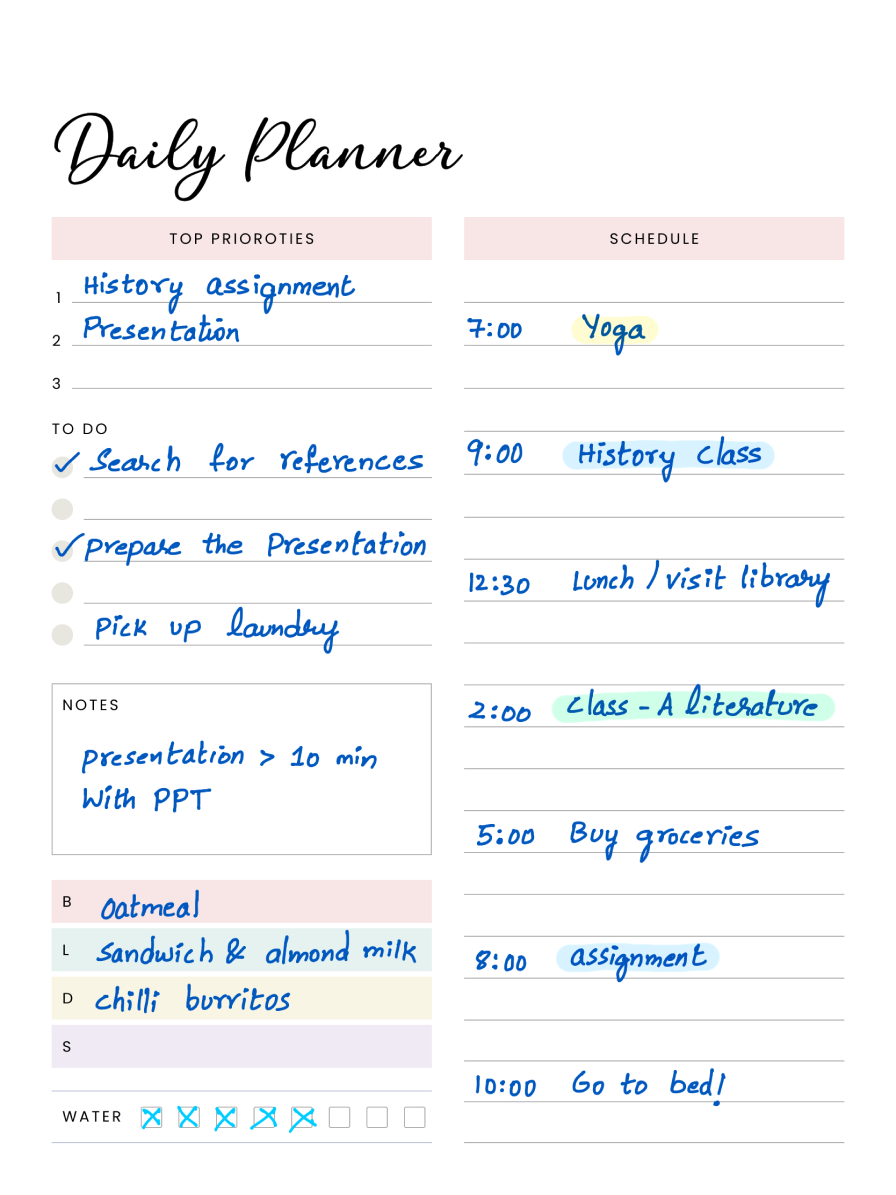 Daily Planner
TOP PRIOROTIES
1 History assignment
2 Presentation
3
TO DO
✓ Search for references
✓ Prepare the Presentation
Pick up laundry
NOTES
presentation > 10 min
With PPT
B oatmeal
L Sandwich & almond milk
D chilli burritos
S
WATER
SCHEDULE
7:00 Yoga
9:00 History class
12:30 Lunch / visit library
2:00 Class - A literature
5:00 Buy groceries
8:00 assignment
10:00 Go to bed!